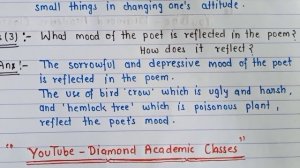 small things in changing one's attitude.
s (3) :- What mood of the poet is reflected in the poem?
How does it reflect?
Ans :- The sorrowful and depressive mood of the poet
is reflected in the poem.
The use of bird 'crow' which is ugly and harsh,
and 'hemlock tree' which is poisonous plant,
reflect the poet's mood.
" YouTube - Diamond Academic Classes "